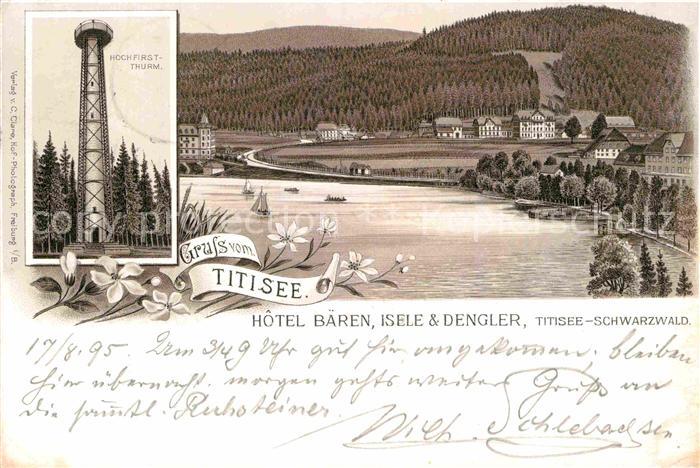 HOCHFIRST-
THURM.
Verlag v. C. Clare, Hof-Photograph, Freiburg i/B.
Gruſs vom
TITISEE.
HÔTEL BÄREN, ISELE & DENGLER, TITISEE-SCHWARZWALD.
17/8.95. Um 3/49 Uhr gut hier angekommen, bleiben
hier übernacht. morgen gehts weiter Gruß an
die sämmtl. Ruhsteiner.
Wilh.